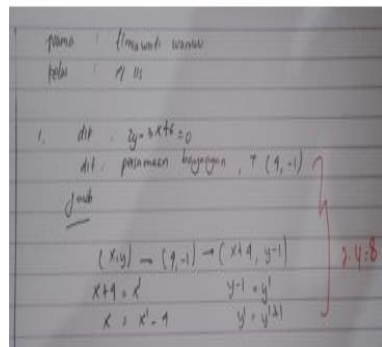 nama :
kelas :
1. dit : 2y-3x+6=0
dit : persamaan bayangan, T (4, -1)
Jawab
(x,y) → (4,-1) → (x+4, y-1)
x+4 = x' y-1 = y'
x = x'-4 y' = y'+1